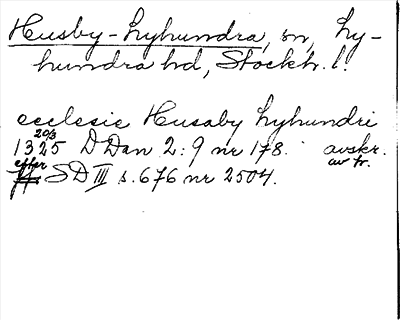 Husby-Lyhundra, sn, Ly-
hundra hd, Stockh. l.
ecclesie Husaby Lyhundri
1325 20/3 DDan 2:9 nr 178. avskr.
efter SD III s. 676 nr 2504. av tr.